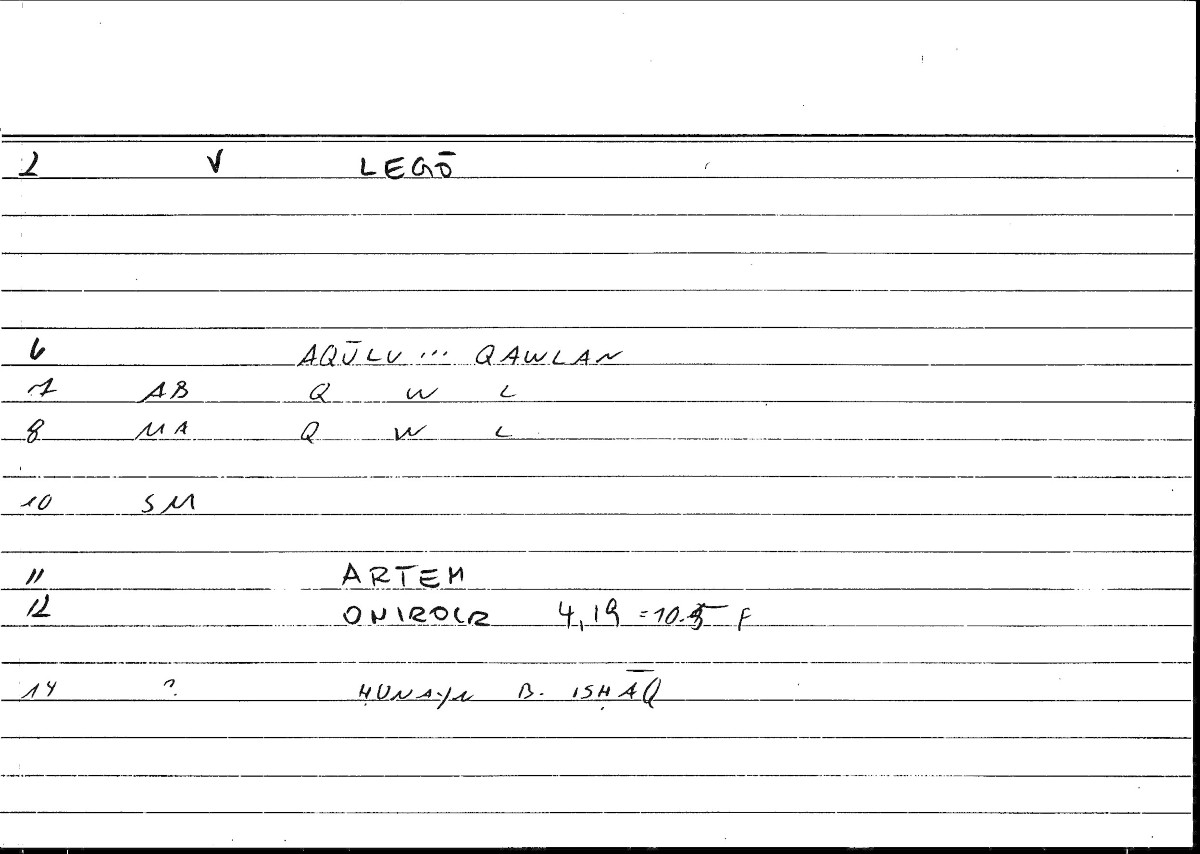 2 V LEGŌ
6 AQŪLU ... QAWLAN
7 AB Q W L
8 MA Q W L
10 SM
11 ARTEM
12 ONIROCR 4,19 = 10.5 F
14 ? ḤUNAYN B. ISḤĀQ